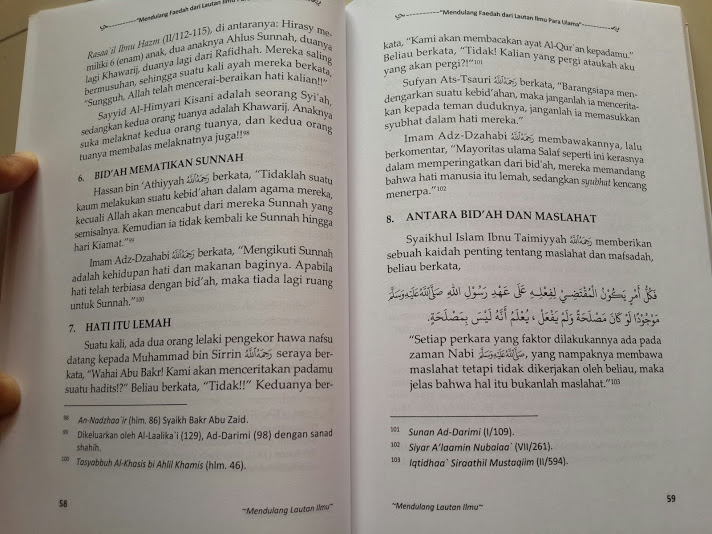 "Mendulang Faedah dari Lautan Ilmu Para
Rasaa`il Ibnu Hazm (II/112-115), di antaranya: Hirasy me-
miliki 6 (enam) anak, dua anaknya Ahlus Sunnah, duanya
lagi Khawarij, duanya lagi dari Rafidhah. Mereka saling
bermusuhan, sehingga suatu kali ayah mereka berkata,
"Sungguh, Allah telah mencerai-beraikan hati kalian!!"
Sayyid Al-Himyari Kisani adalah seorang Syi'ah,
sedangkan kedua orang tuanya adalah Khawarij. Anaknya
suka melaknat kedua orang tuanya, dan kedua orang
tuanya membalas melaknatnya juga!!98
6. BID'AH MEMATIKAN SUNNAH
Hassan bin 'Athiyyah رحمه الله berkata, "Tidaklah suatu
kaum melakukan suatu kebid'ahan dalam agama mereka,
kecuali Allah akan mencabut dari mereka Sunnah yang
semisalnya. Kemudian ia tidak kembali ke Sunnah hingga
hari Kiamat."99
Imam Adz-Dzahabi رحمه الله berkata, "Mengikuti Sunnah
adalah kehidupan hati dan makanan baginya. Apabila
hati telah terbiasa dengan bid'ah, maka tiada lagi ruang
untuk Sunnah."100
7. HATI ITU LEMAH
Suatu kali, ada dua orang lelaki pengekor hawa nafsu
datang kepada Muhammad bin Sirrin رحمه الله seraya ber-
kata, "Wahai Abu Bakr! Kami akan menceritakan padamu
suatu hadits!?" Beliau berkata, "Tidak!!" Keduanya ber-
98 An-Nadzhaa`ir (hlm. 86) Syaikh Bakr Abu Zaid.
99 Dikeluarkan oleh Al-Laalika`i (129), Ad-Darimi (98) dengan sanad
shahih.
100 Tasyabbuh Al-Khasis bi Ahlil Khamis (hlm. 46).
58
~Mendulang Lautan Ilmu~
"Mendulang Faedah dari Lautan Ilmu Para Ulama"
kata, "Kami akan membacakan ayat Al-Qur'an kepadamu."
Beliau berkata, "Tidak! Kalian yang pergi ataukah aku
yang akan pergi?!"101
Sufyan Ats-Tsauri رحمه الله berkata, "Barangsiapa men-
dengarkan suatu kebid'ahan, maka janganlah ia mencerita-
kan kepada teman duduknya, janganlah ia memasukkan
syubhat dalam hati mereka."
Imam Adz-Dzahabi رحمه الله membawakannya, lalu
berkomentar, "Mayoritas ulama Salaf seperti ini kerasnya
dalam memperingatkan dari bid'ah, mereka memandang
bahwa hati manusia itu lemah, sedangkan syubhat kencang
menerpa."102
8. ANTARA BID'AH DAN MASLAHAT
Syaikhul Islam Ibnu Taimiyyah رحمه الله memberikan
sebuah kaidah penting tentang maslahat dan mafsadah,
beliau berkata,
فَكُلُّ أَمْرٍ يَكُونُ الْمُقْتَضِيْ لِفِعْلِهِ عَلَى عَهْدِ رَسُولِ اللهِ صلى الله عليه وسلم
مَوْجُودًا لَوْ كَانَ مَصْلَحَةً وَلَمْ يَفْعَلْ ، يُعْلَمُ أَنَّهُ لَيْسَ بِمَصْلَحَةٍ.
"Setiap perkara yang faktor dilakukannya ada pada
zaman Nabi صلى الله عليه وسلم, yang nampaknya membawa
maslahat tetapi tidak dikerjakan oleh beliau, maka
jelas bahwa hal itu bukanlah maslahat."103
101 Sunan Ad-Darimi (I/109).
102 Siyar A'laamin Nubalaa` (VII/261).
103 Iqtidhaa` Siraathil Mustaqiim (II/594).
~Mendulang Lautan Ilmu~
59